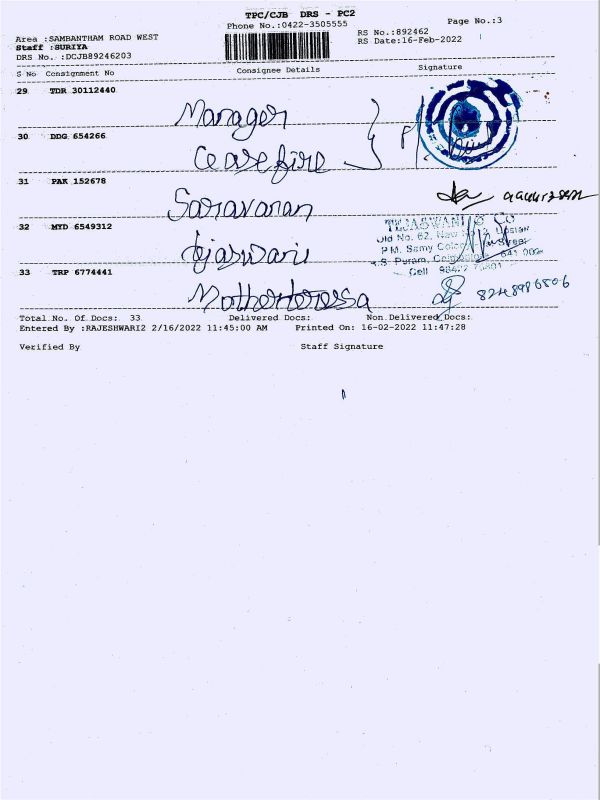 TPC/CJB DRS - PC2
Phone No.:0422-3505555
Page No.:3
Area :SAMBANTHAM ROAD WEST
Staff :SURIYA
DRS No. :DCJB89246203
RS No.:892462
RS Date:16-Feb-2022
S No Consignment No Consignee Details Signature
29 TDR 30112440
Manager
30 DDG 654266
Ceasefire
31 PAK 152678
Saravanan
32 MYD 6549312
TEJASWANI & Co
Old No. 62, New
P.M. Samy Colony
R.S. Puram, Coimbatore - 641 002
Cell
Tejaswani
33 TRP 6774441
Motherteressa
8248986506
Total No. Of Docs: 33 Delivered Docs: Non.Delivered Docs:
Entered By :RAJESHWARI2 2/16/2022 11:45:00 AM Printed On: 16-02-2022 11:47:28
Verified By Staff Signature